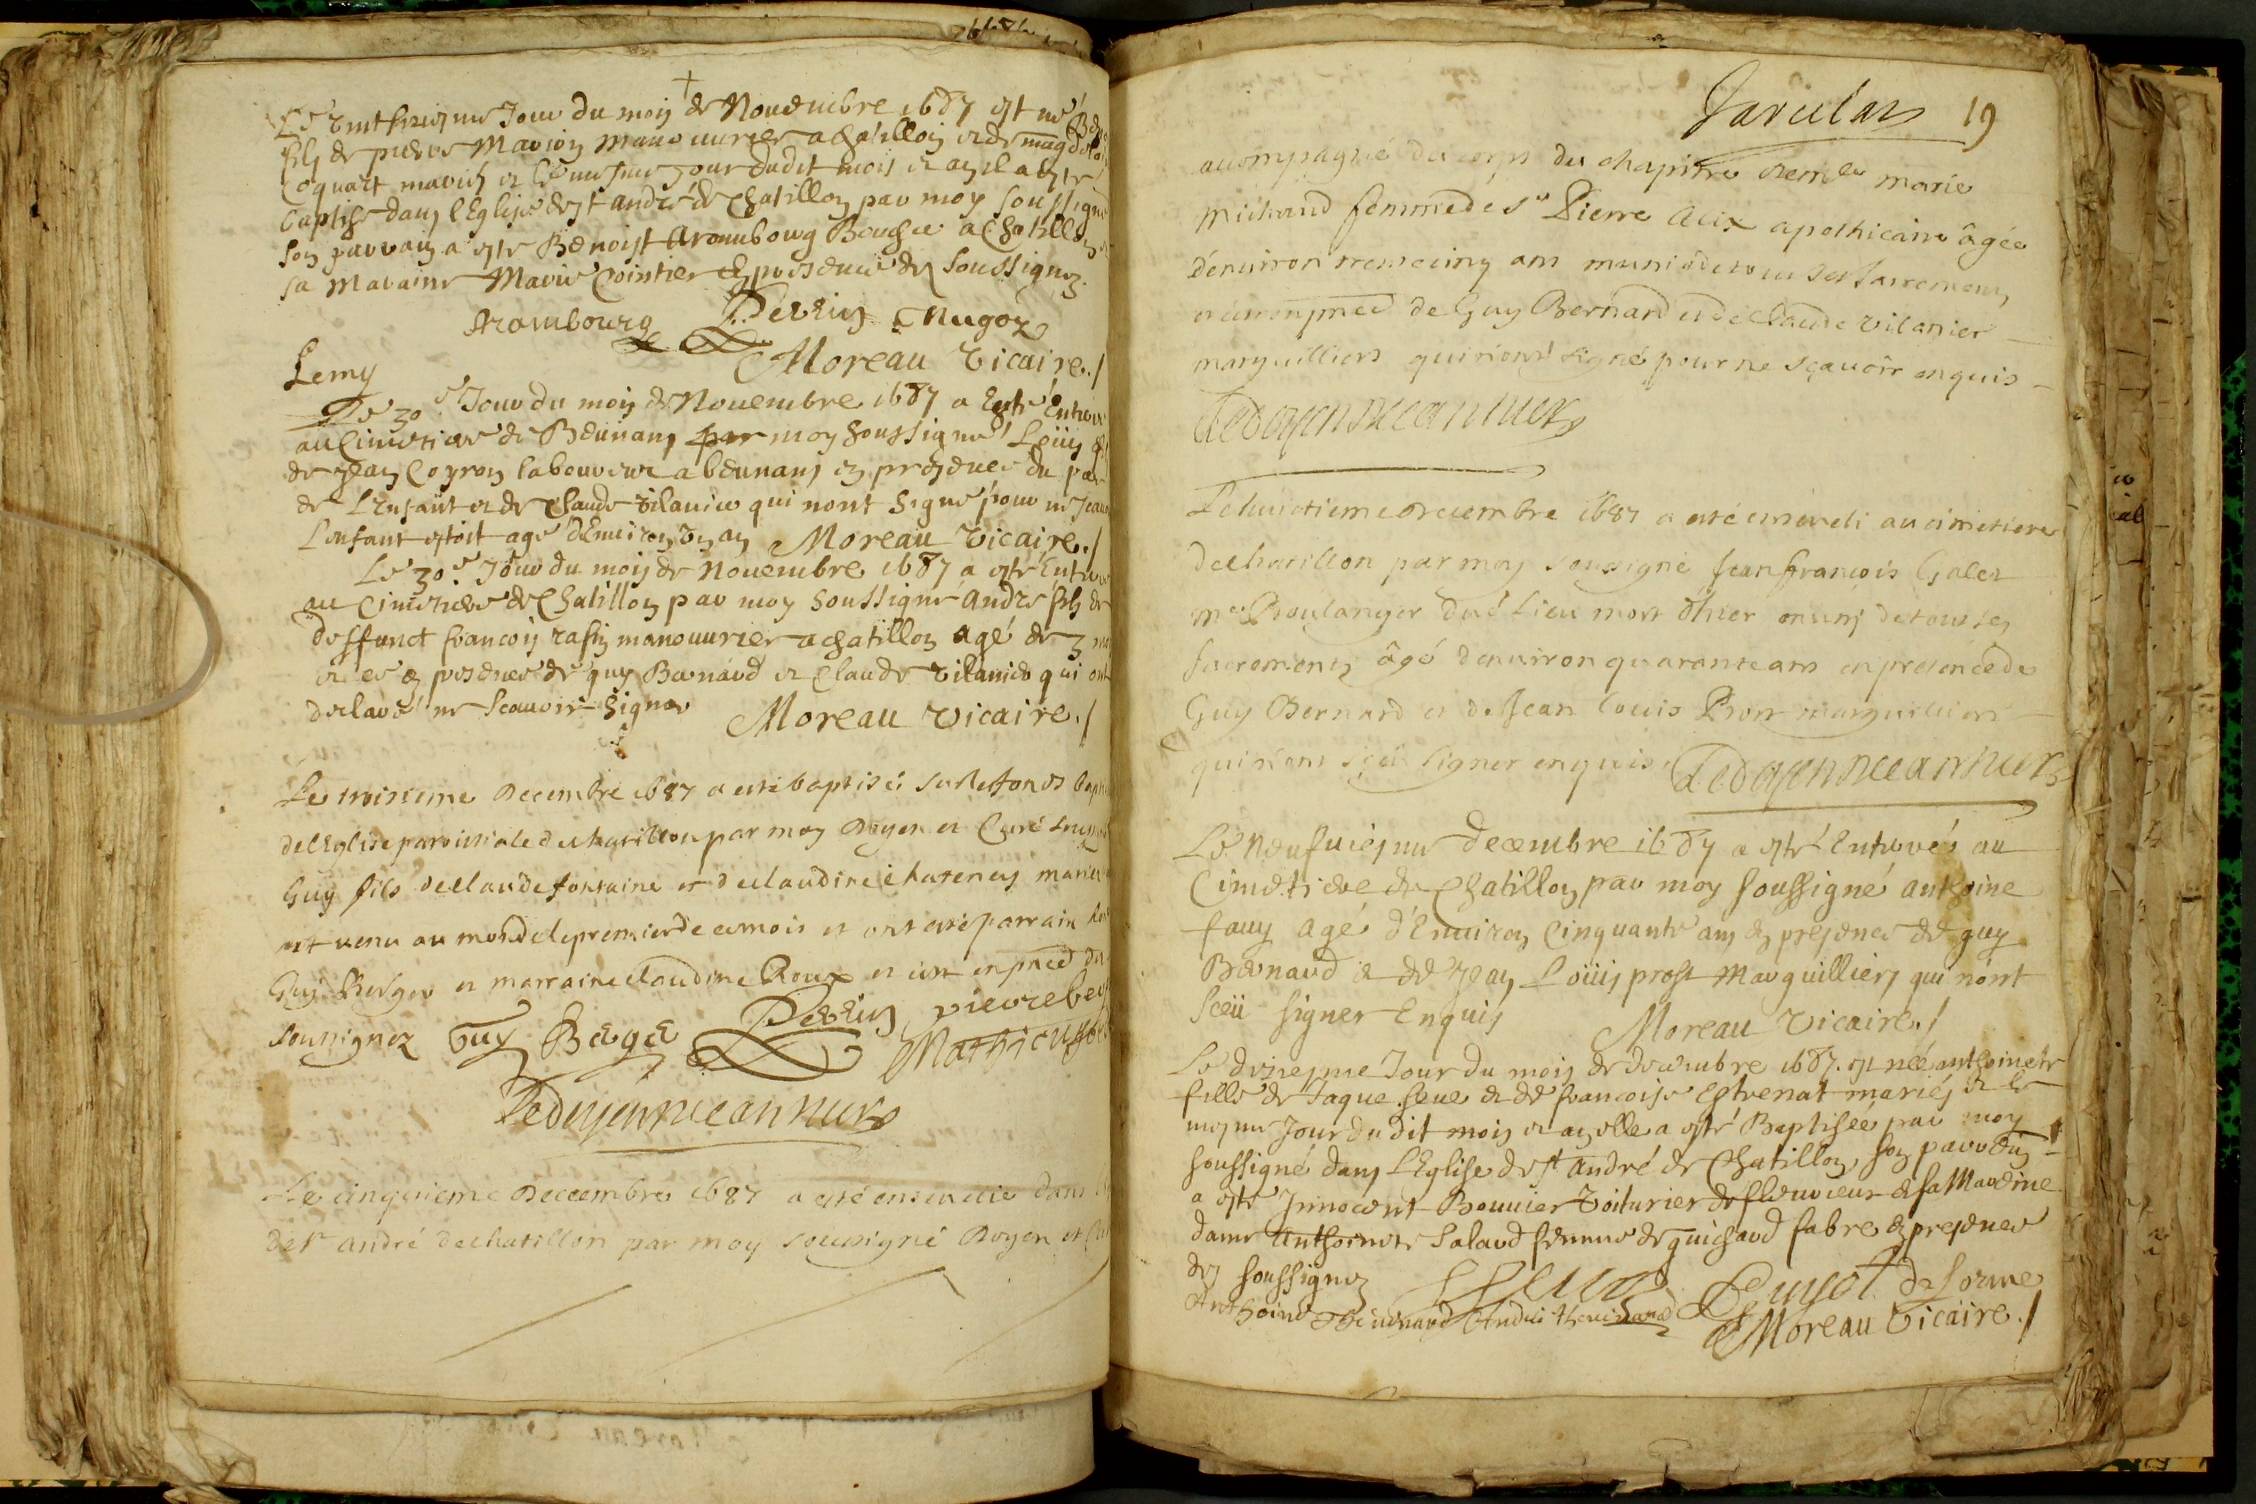 Le Jour du mois de Nouembre 1687 est né
fils de pierre Marion manouurier a chatillon et de magdelai
Coquart mariés et le mesme Jour dudit mois et an il a este
baptisé dans l'Eglise de st andré de Chatillon par moy soussigné
son parrain a este Benoist Arambourg Boucher a Chatillon
sa maraine Marie Cointier En presence des soussignez
Arambourg Perrin Nugoz
Moreau Vicaire./
Lemy
Le 30e Jour du mois de Nouembre 1687 a Esté Enterré
au Cimetiere de Beunans par moy soussigné Loüis fils
de Jean Coyron laboureur a beunans en presence du pere
de L'enfant et de Claude vilanier qui nont signé pour ne scau
L'enfant estoit agé d'Enuiron Un an Moreau Vicaire./
Le 30e Jour du mois de Nouembre 1687 a esté Enterré
au Cimetiere de Chatillon par moy soussigné andré fils de
deffunct francois rafin manouurier a chatillon agé de 3
et ce en presence de guy Bernard et Claude vilanier qui ont
declaré ne scauoir signer Moreau vicaire./
Le troisieme Decembre 1687 a esté baptisé sur les fonds bapt
de l'Eglise paroissiale de chatillon par moy Doyen et Curé soussigné
Guy fils de Claude fontaine et de claudine chateney mariés
est uenu au monde le premier de ce mois et ont esté parrain
Guy Berger et marraine claudine Roux et ce en pnce des
soussignez Guy Berge Perrin pierre
Mathieu
Le doyen
Le cinquieme Decembre 1687 a esté enseuelie dans
de st andré de chatillon par moy soussigné Doyen et Cu
19
accompagné du corps du chapitre demlle marie
Michaud femme de sr Pierre Alix apothicaire âgée
d'enuiron trente cinq ans munie de tous ses sacrements
et ce en pnce de Guy Bernard et de Claude vilanier
marguilliers qui n'ont signé pour ne sçauoir enquis
Le doyen
Le huictieme decembre 1687 a esté enseueli au cimetiere
de chatillon par moy soussigné Jean francois Galet
me Boulanger dud lieu mort d'hier muny de tous les
sacrements âgé d'enuiron quarante ans en presence de
Guy Bernard et de Jean Louis Prost marguilliers
qui n'ont sçeu signer enquis Le doyen
Le neufuiesme decembre 1687 a esté Enterré au
Cimetiere de Chatillon par moy soussigné anthoine
fauy agé d'Enuiron Cinquante ans en presence de guy
Bernard et de Jean Loüis prost Marguilliers qui n'ont
sceü signer Enquis Moreau Vicaire./
Le dixiesme Jour du mois de decembre 1687. est née anthoinete
fille de Jaque feue et de francoise Estrenat mariés et le
mesme Jour du dit mois et an elle a esté Baptisée par moy
soussigné dans L'Eglise de st andré de Chatillon, son parrain
a esté Innocent Bouuier Voiturier de fleurieux et sa Mareine
dame Anthoinete Salaud femme de guichard fabre en presence
des soussignez Guyot de lorme
Anthoine Theuenard André theuenard Moreau Vicaire./